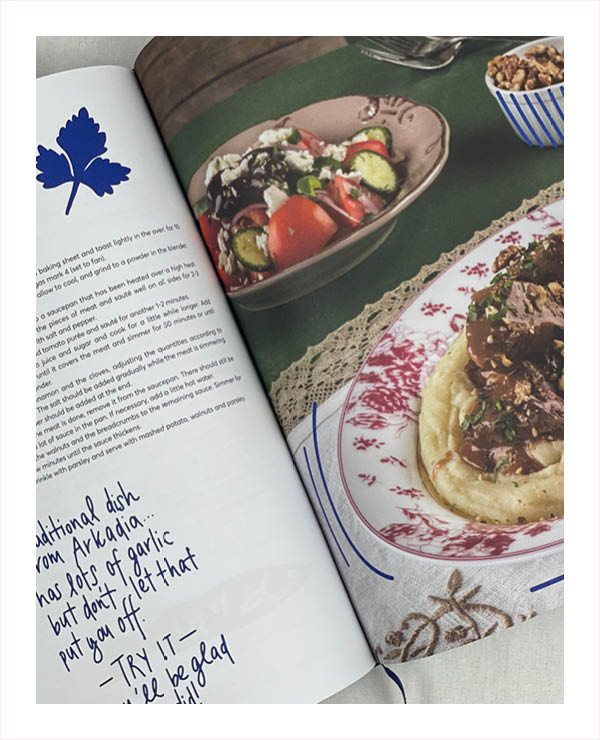 baking sheet and toast lightly in the oven, for 10
gas mark 4 (set to fan).
allow to cool, and grind to a powder in the blender.
a saucepan that has been heated over a high heat
the pieces of meat and sauté well on all sides for 2-3
with salt and pepper.
tomato purée and sauté for another 1-2 minutes.
juice and sugar and cook for a little while longer. Add
until it covers the meat and simmer for 50 minutes or until
and the cloves, adjusting the quantities according to
The salt should be added gradually while the meat is simmering.
should be added at the end.
meat is done, remove it from the saucepan. There should still be
lot of sauce in the pan. If necessary, add a little hot water.
the walnuts and the breadcrumbs to the remaining sauce. Simmer for
minutes until the sauce thickens.
with parsley and serve with mashed potato, walnuts and parsley.
dish
from Arkadia...
has lots of garlic
but don't let that
put you off.
—TRY IT—
be glad